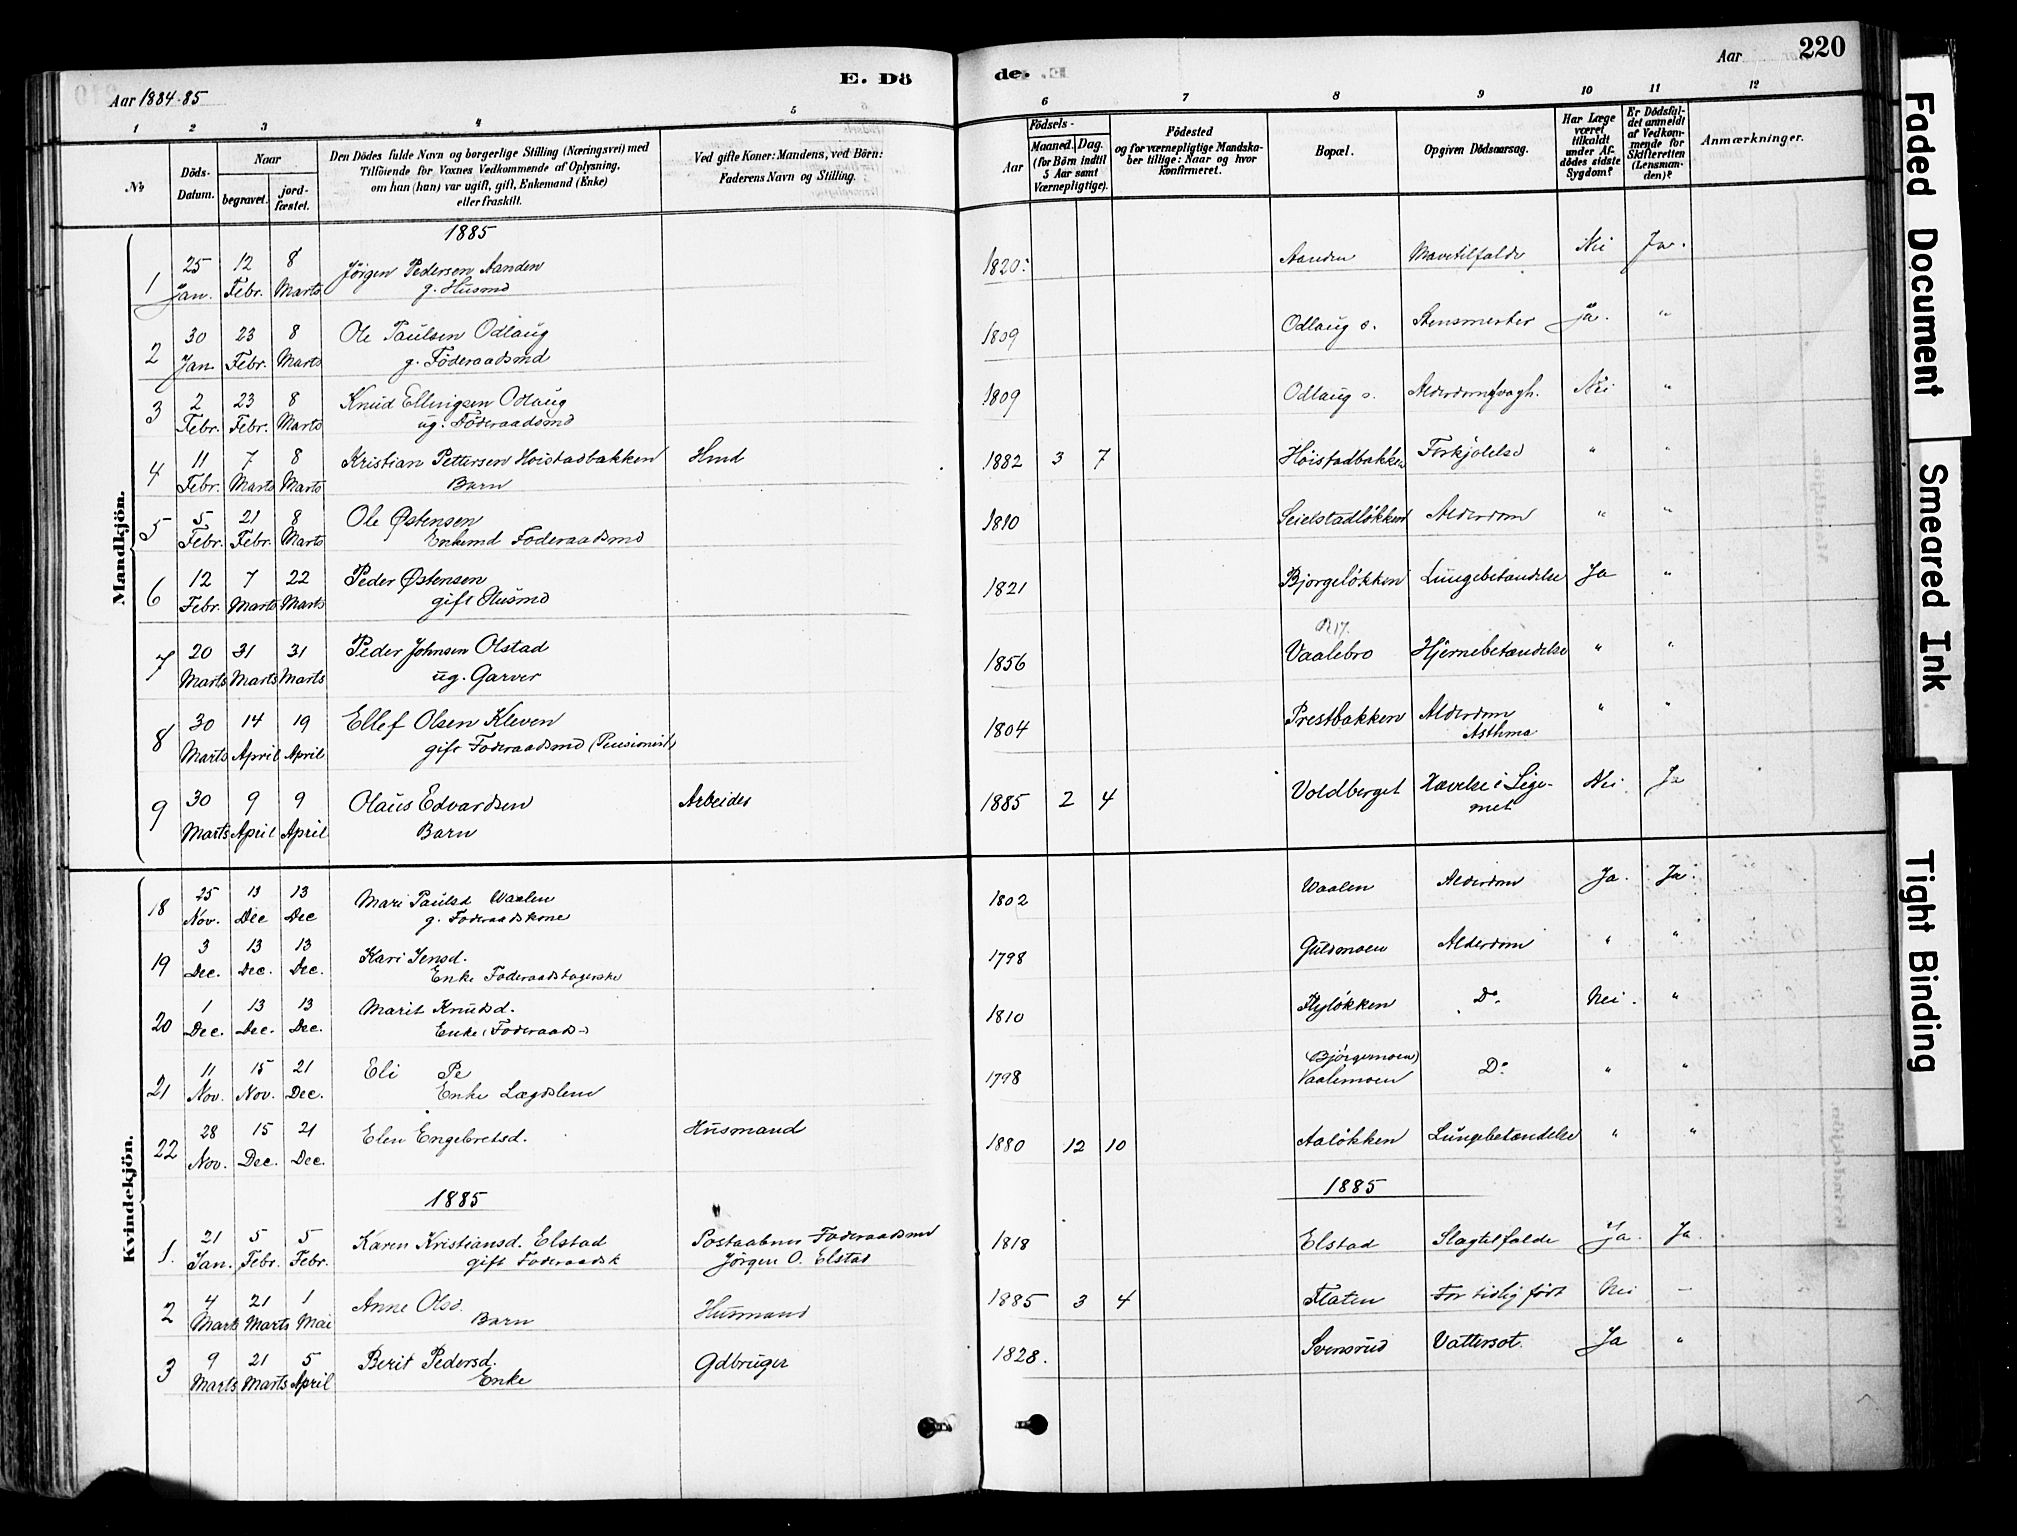 Aar 1884-85
E. Dö
de.
Aar
220
1 2 3 4 5 6 7 8 9 10 11 12
No
Döds-Datum.
Naar
begravet.
jord-fæstet.
Den Dödes fulde Navn og borgerlige Stilling (Næringsvei) med
Tilföiende for Voxnes Vedkommende af Oplysning,
om han (hun) var ugift, gift, Enkemand (Enke)
eller fraskilt.
Ved gifte Koner: Mandens, ved Börn:
Faderens Navn og Stilling.
Födsels-
Aar
Maaned. Dag.
(for Börn indtil
5 Aar samt
Værnepligtige).
Födested
og for værnepligtige Mandska-
ber tillige: Naar og hvor
konfirmeret.
Bopæl.
Opgiven Dödsaarsag.
Har Læge
været
tilkaldt
under Af-
dödes sidste
Sygdom?
Er Dödsfal-
det anmeldt
af Vedkom-
mende for
Skifteretten
(Lensman-
den)?
Anmærkninger.
Mandkjön.
1885
1 25 12 8 Jørgen Pedersen Aanden 1820 Aanden Mavetilfælde Nei Ja.
Jan. Febr. Marts g. Husmd
2 30 23 8 Ole Paulsen Odlaug 1809 Odlaug s. Ja. "
Jan. Febr. Marts g. Føderaadsmd
3 2 23 8 Knud Ellingsen Odlaug 1809 Odlaug s. Nei "
Febr. Febr. Marts ug. Føderaadsmd
4 11 7 8 Kristian Pettersen Hoistadbakken Hmd 1882 3 7 Høistadbakken Forkjølelse " "
Febr. Marts Marts Barn
5 5 21 8 Ole Østensen 1810 Seielstadløkken Alderdom " "
Febr. Febr. Marts Enkemd Foderaadsmd
6 12 7 22 Peder Østensen 1821 Bjorgeløkken Lungebetændelse Ja "
Febr. Marts Marts gift Husmd
7 20 31 31 Peder Johnsen Olstad 1856 Vaalebro Hjernebetændelse " "
Marts Marts Marts ug. Garver
8 30 14 19 Ellef Olsen Kleven 1804 Prestbakken Alderdom " "
Marts April April gift Foderaadsmd (Pensionist) Asthma
9 30 9 9 Olaus Edvardsen Arbeider 1885 2 4 Voldberget Hævelse i Lege- Nei Ja
Marts April April Barn met
Kvindekjön.
18 25 13 13 Mari Paulsd Waalen 1802 Waalen Alderdom Ja. Ja.
Nov. Dec Dec g. Foderaadskone
19 3 13 13 Kari Jensd. 1798 Guldmoen Alderdom " "
Dec. Dec. Dec. Enke Foderaadstagerske
20 1 13 13 Marit Knudsd. 1810 Flyløkken Do. Nei. "
Dec. Dec. Dec. Enke (Foderaads-)
21 11 15 21 Eli Pe 1798 (Bjørgemoen) Do " "
Nov. Nov. Dec. Enke Lægdslem Vaalemoen
22 28 15 21 Elen Engebretsd. Husmand 1880 12 10 Aaløkken Lungebetændelse " "
Nov. Dec. Dec.
1885 1885
1. 21 5 5 Karen Kristiansd. Elstad Postaabner Foderaadsmd 1818 Elstad Slagtilfælde Ja. Ja.
Jan. Febr. Febr. gift Foderaadsk Jørgen O. Elstad
2 4 21 1 Anne Olsd. Husmand 1885 3 4 Flaten For tidlig født Nei –
Marts Marts Mai Barn
3 9 21 5 Berit Pedersd. Gdbruger 1828. Svensrud Vattersot. Ja "
Marts Marts April Enke
Faded Document
Smeared Ink
Tight Binding